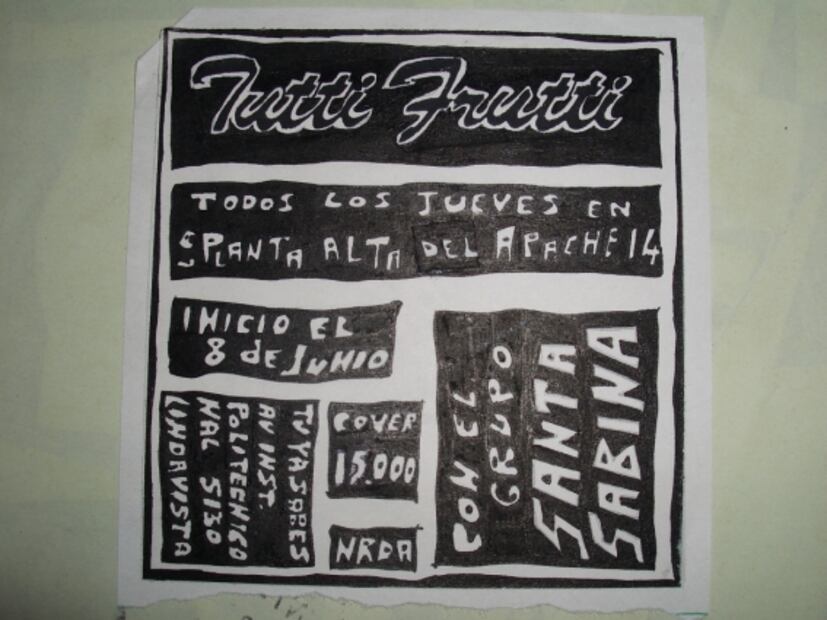 Tutti Frutti
TODOS LOS JUEVES EN
LA PLANTA ALTA DEL APACHE 14
INICIO EL
8 de JUNIO
CON EL
GRUPO
SANTA
SABINA
TU YA SABES
AV INST.
POLITECNICO
NAL 5130
LINDAVISTA
COVER
15.000
NRDA